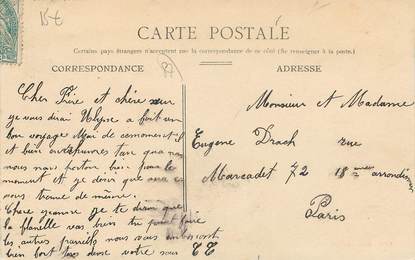 15€
CARTE POSTALE
Certains pays étrangers n'acceptent pas la correspondance de ce côté (Se renseigner à la poste.)
CORRESPONDANCE
ADRESSE
Cher Frère et chère sœur
je vous dirai Ulysse a fait un
bon voyage
et bien
nous nous porton bien pour le
moment et je désir que
vous trouve de même.
Chère je te dirai que
la flanelle vas bien tu peut faire
les autres pareils nous vous embrassont
bien fort tous deux votre sœur
Monsieur et Madame
Eugene Drach rue
Marcadet 72 18 arrondis
Paris